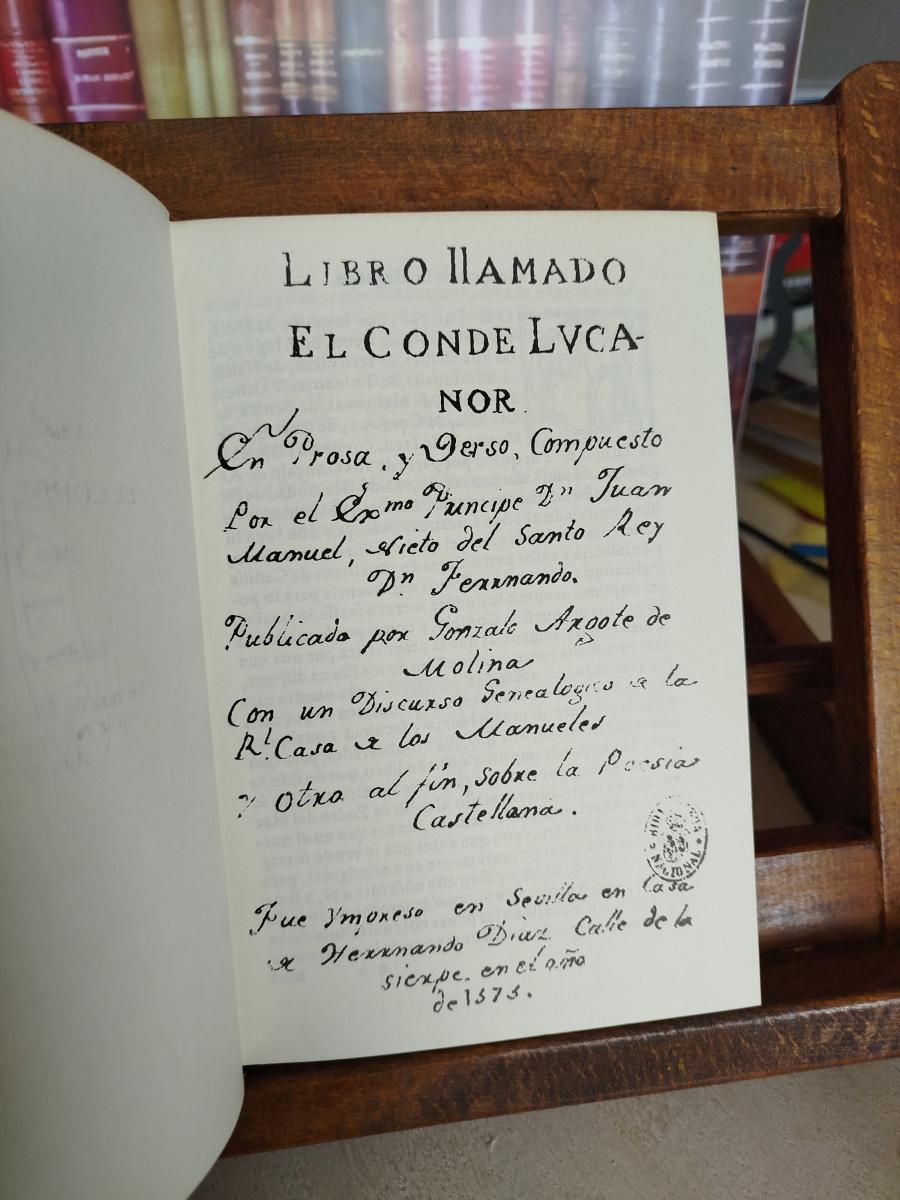 LIBRO llAMADO
EL CONDE LVCA-
NOR.
En Prosa, y Verso, Compuesto
Por el Exmo Principe Dn Juan
Manuel, Nieto del Santo Rey
Dn Ferrnando.
Publicado por Gonzalo Argote de
Molina
Con un Discurso Genealogico de la
Rl. Casa de los Manueles
y Otro al fin, sobre la Poesia
Castellana.
Fue Ympreso en Sevilla en Casa
de Herrnando Diaz Calle de la
sierpe. en el año
de 1575.